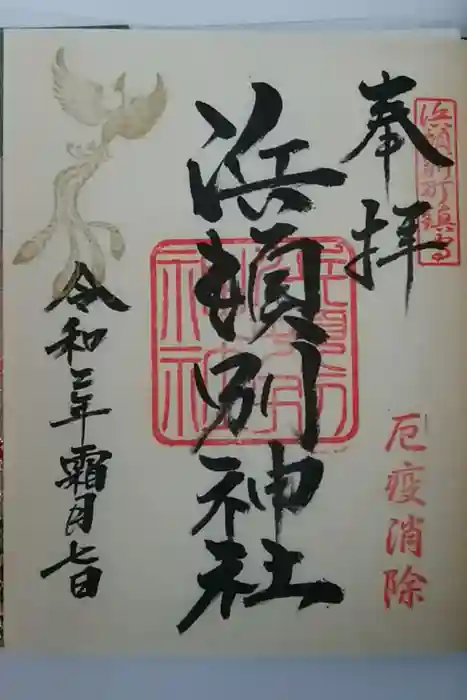 奉拝
浜頓別町鎮守
厄疫消除
浜頓別神社
浜頓別神社
令和二年霜月七日